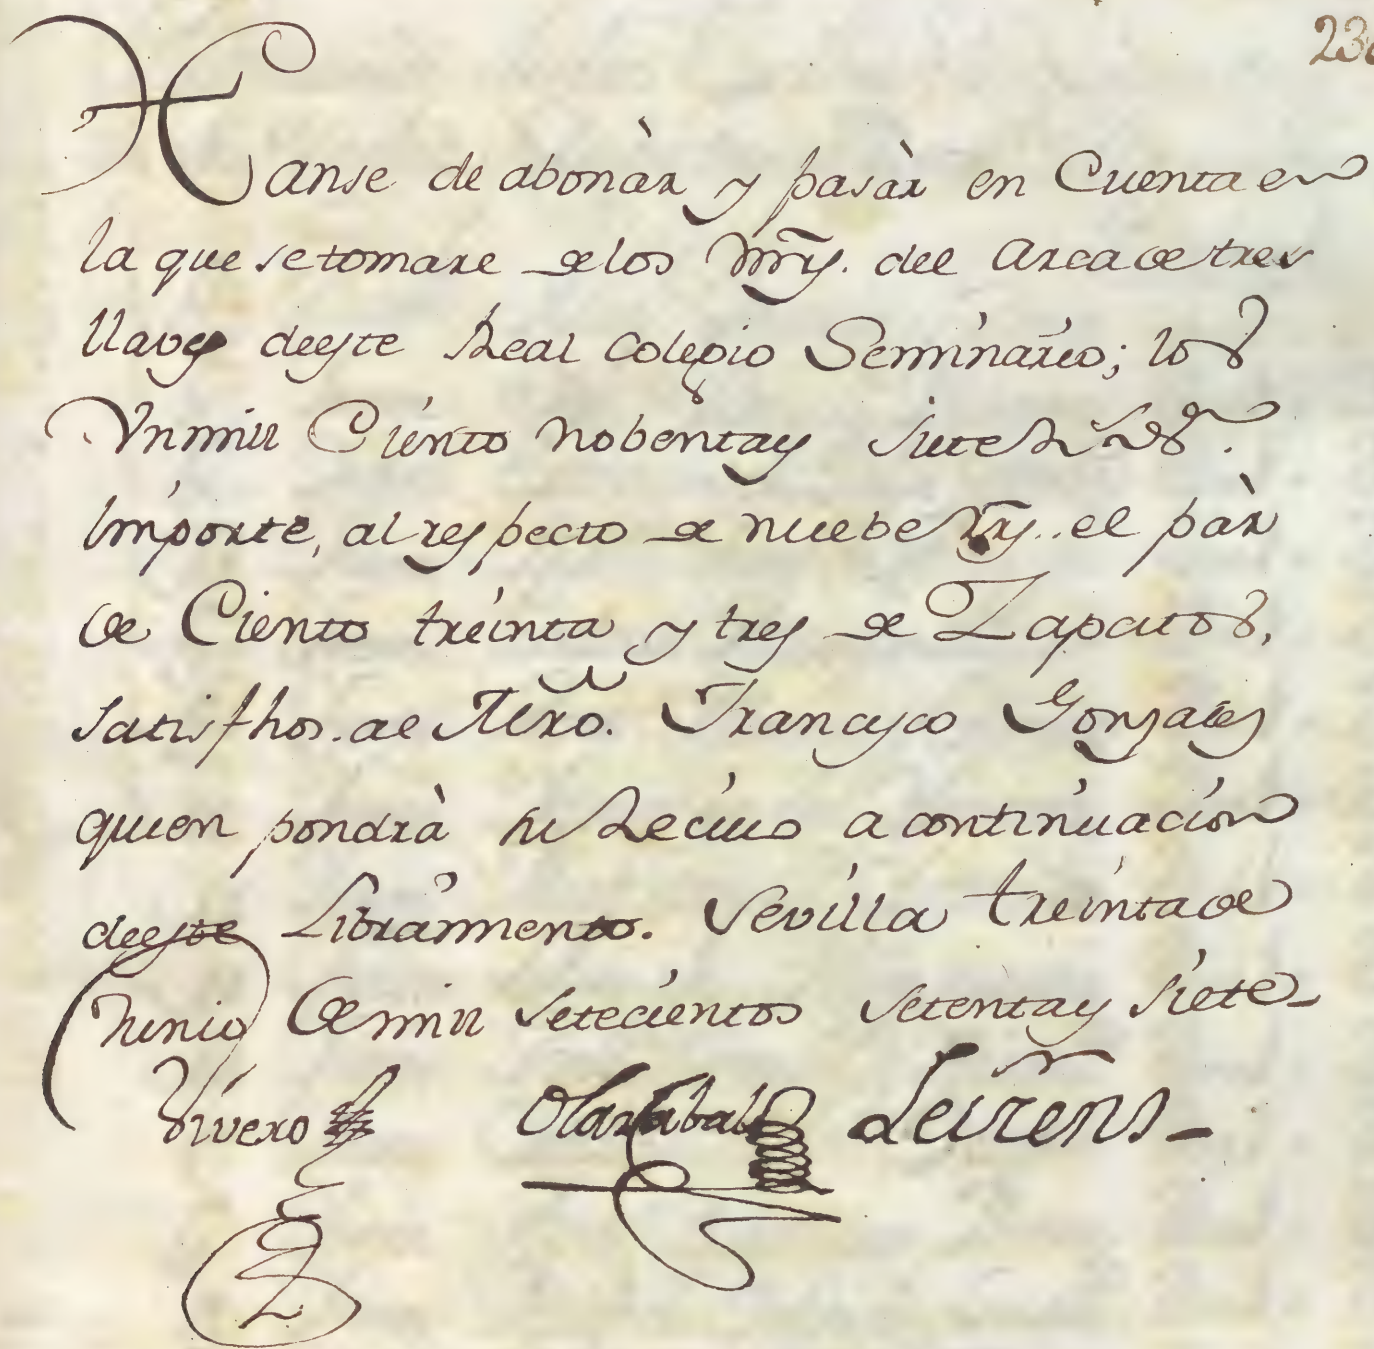 Hanse de abonàr y pasàr en Cuenta en
la que se tomare de los mrs. del Arca de tres
llaves deeste Real Colegio Seminario; los
Vn mill Ciento nobenta y siete Rs Von.
importe, al respecto de nuebe rrs. el pàr
de Ciento treinta y tres de Zapatos,
satisfhos. al Mro. Francisco Gonzales
quien pondrà su Reciuo a continuacion
deeste Libramiento. Sevilla treinta de
Junio de mill setecientos setenta y siete_
Vivero Olazabal